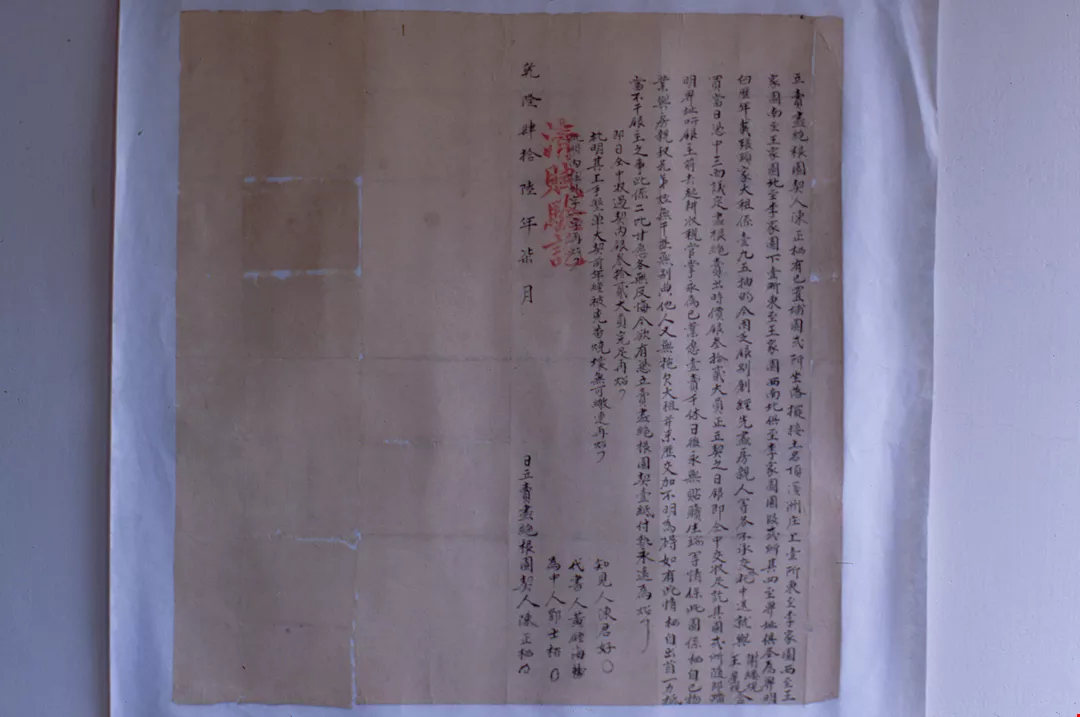 立賣盡絕根園契人陳正栖有己置埔園貳所坐落擺接土名頂溪洲庄上壹所東至李家園西至王
家園南至王家園北至李家園下壹所東至王家園西南北俱至李家園園段貳所其四至界址俱叁為界明
白歷年載張聯家大租係壹九五抽的今因乏銀別創經先盡房親人等各不承交托中送就與謝 王 合
買當日憑中三面議定盡根絕賣出時價銀叁拾貳大員正立契之日銀即仝中交收足訖其園貳所隨即踏
明界址听銀主前去起耕收稅管掌永為己業息壹賣千休日後永無貼贖生端等情保此園係栖自己物
業與房親叔兄弟姪無干並無別典他人又無拖欠大租并來歷交加不明為碍如有此情栖自出首一力抵
當不干銀主之事此係二比甘愿各無反悔今欲有憑立賣盡絕根園契壹紙付執永遠為炤
即日仝中收過契內銀叁拾貳大員完足再炤
批明其上手墾單大契前年經被 燒壞無可繳連再炤
批明內 字 再炤
清賦驗訖
知見人陳君好
代書人黃 海
為中人郭士栢
乾隆肆拾陸年柒月 日立賣盡絕根園契人陳正栖